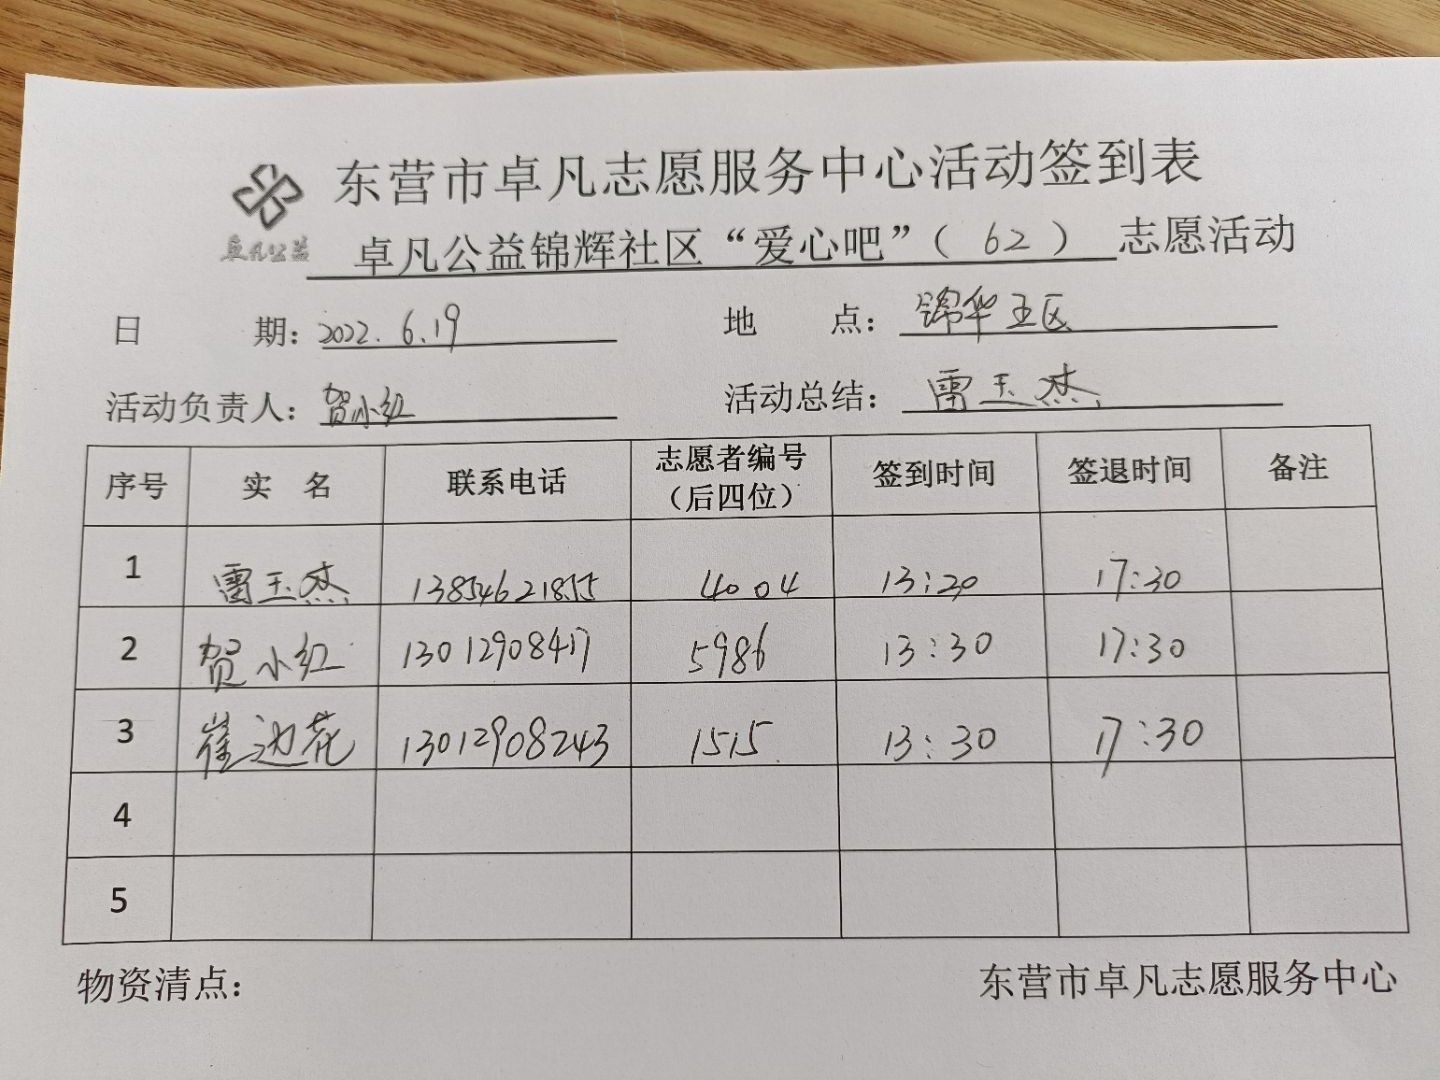 东营市卓凡志愿服务中心活动签到表
卓凡公益
卓凡公益锦辉社区“爱心吧”（62）志愿活动
日 期：2022.6.19 地 点：锦华五区
活动负责人：贺小红 活动总结：雷玉杰
序号 实 名 联系电话 志愿者编号（后四位） 签到时间 签退时间 备注
1 雷玉杰 13854621855 4004 13:20 17:30
2 贺小红 13012908417 5986 13:30 17:30
3 崔边花 13012908243 1515 13:30 17:30
4
5
物资清点： 东营市卓凡志愿服务中心